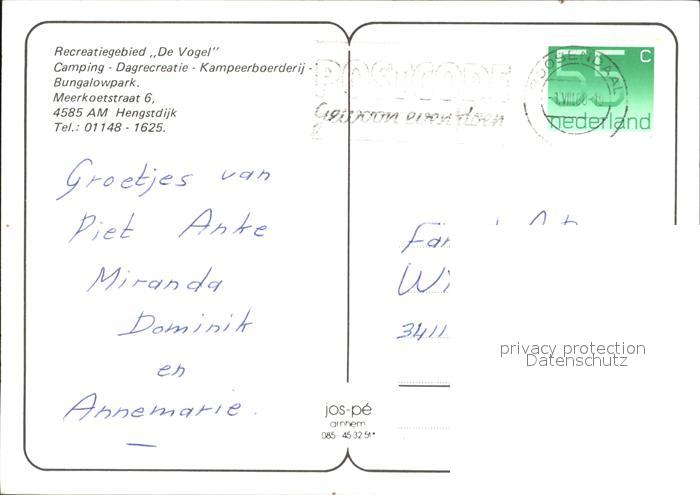 Recreatiegebied „De Vogel"
Camping - Dagrecreatie - Kampeerboerderij -
Bungalowpark.
Meerkoetstraat 6,
4585 AM Hengstdijk
Tel.: 01148 - 1625.
POSTCODE
Gewoon even doen
ROOSENDAAL
55 c
nederland
Groetjes van
Piet Anke
Miranda
Dominik
en
Annemarie.
Fam
Wi
3411
privacy protection
Datenschutz
jos-pé
arnhem
085 - 45 32 51*